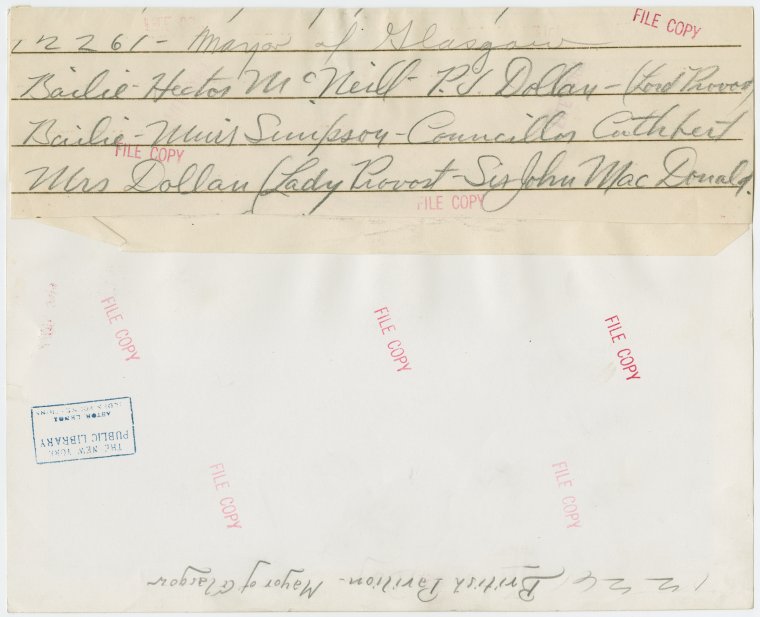 12261 - Mayor of Glasgow
FILE COPY
Bailie - Hector McNeill - P.J. Dollan - (Lord Provost)
Bailie - Muir Simpson - Councillor Cuthbert
FILE COPY
Mrs Dollan (Lady Provost - Sir John MacDonald.
FILE COPY
FILE COPY
FILE COPY
FILE COPY
THE NEW YORK
PUBLIC LIBRARY
ASTOR LENOX
FILE COPY
FILE COPY
British Pavilion - Mayor of Glasgow